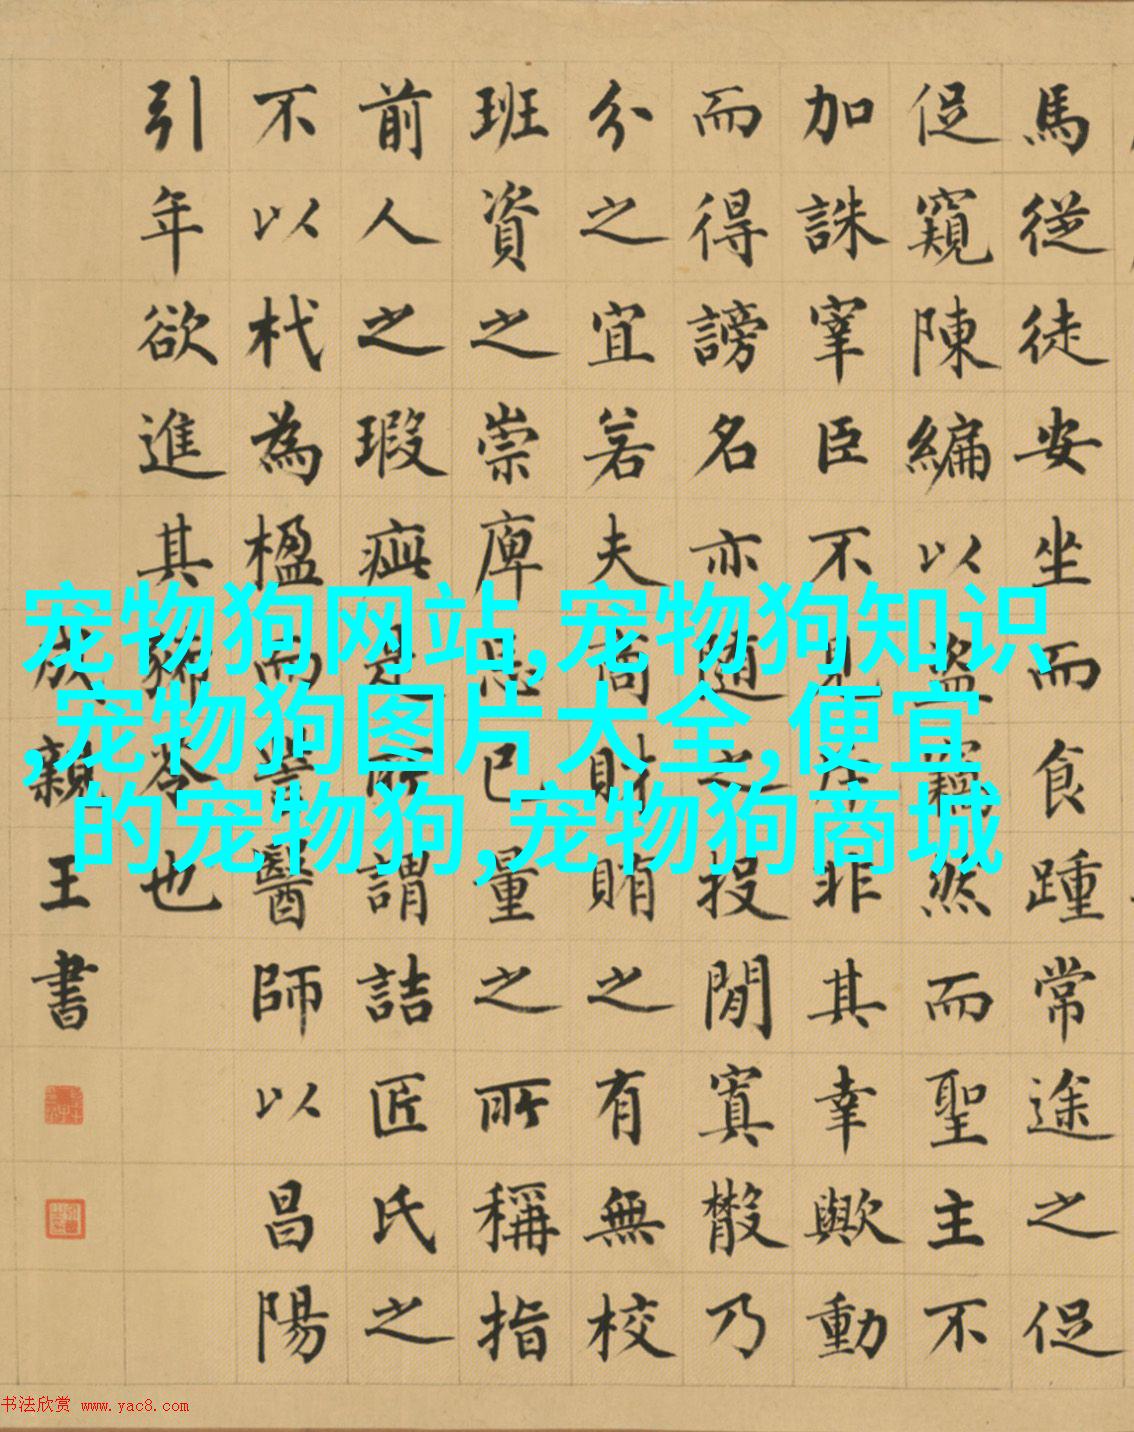 馬從徒安坐而食踵常途之促
促窺陳編以盜竊然而聖主不
加誅宰臣不見斥非其幸歟動
而得謗名亦隨之投閒寘散乃
分之宜若夫商財賄之有無校
班資之崇庳忘已量之所稱指
前人之瑕疵是所謂詰匠氏之
不以杙為楹而訾醫師以昌陽
引年欲進其豨苓也
成親王書
宠物狗网站,宠物狗知识
,宠物狗图片大全,便宜
的宠物狗,宠物狗商城
书法欣赏 www.yac8.com